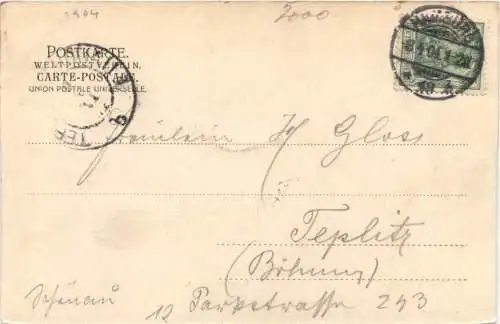 1904
2000
POSTKARTE.
WELTPOSTVEREIN.
CARTE-POSTALE.
UNION POSTALE UNIVERSELLE.
Fräulein H Gloss
Teplitz
(Böhmen)
Schönau
12 Parkstrasse 243